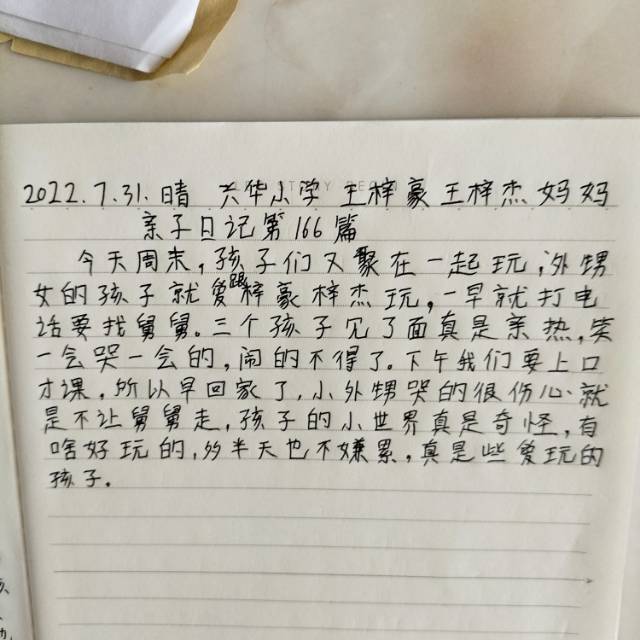 2022.7.31.晴 六华小学 王梓豪王梓杰妈妈
亲子日记第166篇
今天周末,孩子们又聚在一起玩,外甥
女的孩子就爱跟梓豪梓杰玩,一早就打电
话要找舅舅。三个孩子见了面真是亲热,笑
一会哭一会的,闹的不得了。下午我们要上口
才课,所以早回家了,小外甥哭的很伤心就
是不让舅舅走,孩子的小世界真是奇怪,有
啥好玩的,疯半天也不嫌累,真是些爱玩的
孩子。